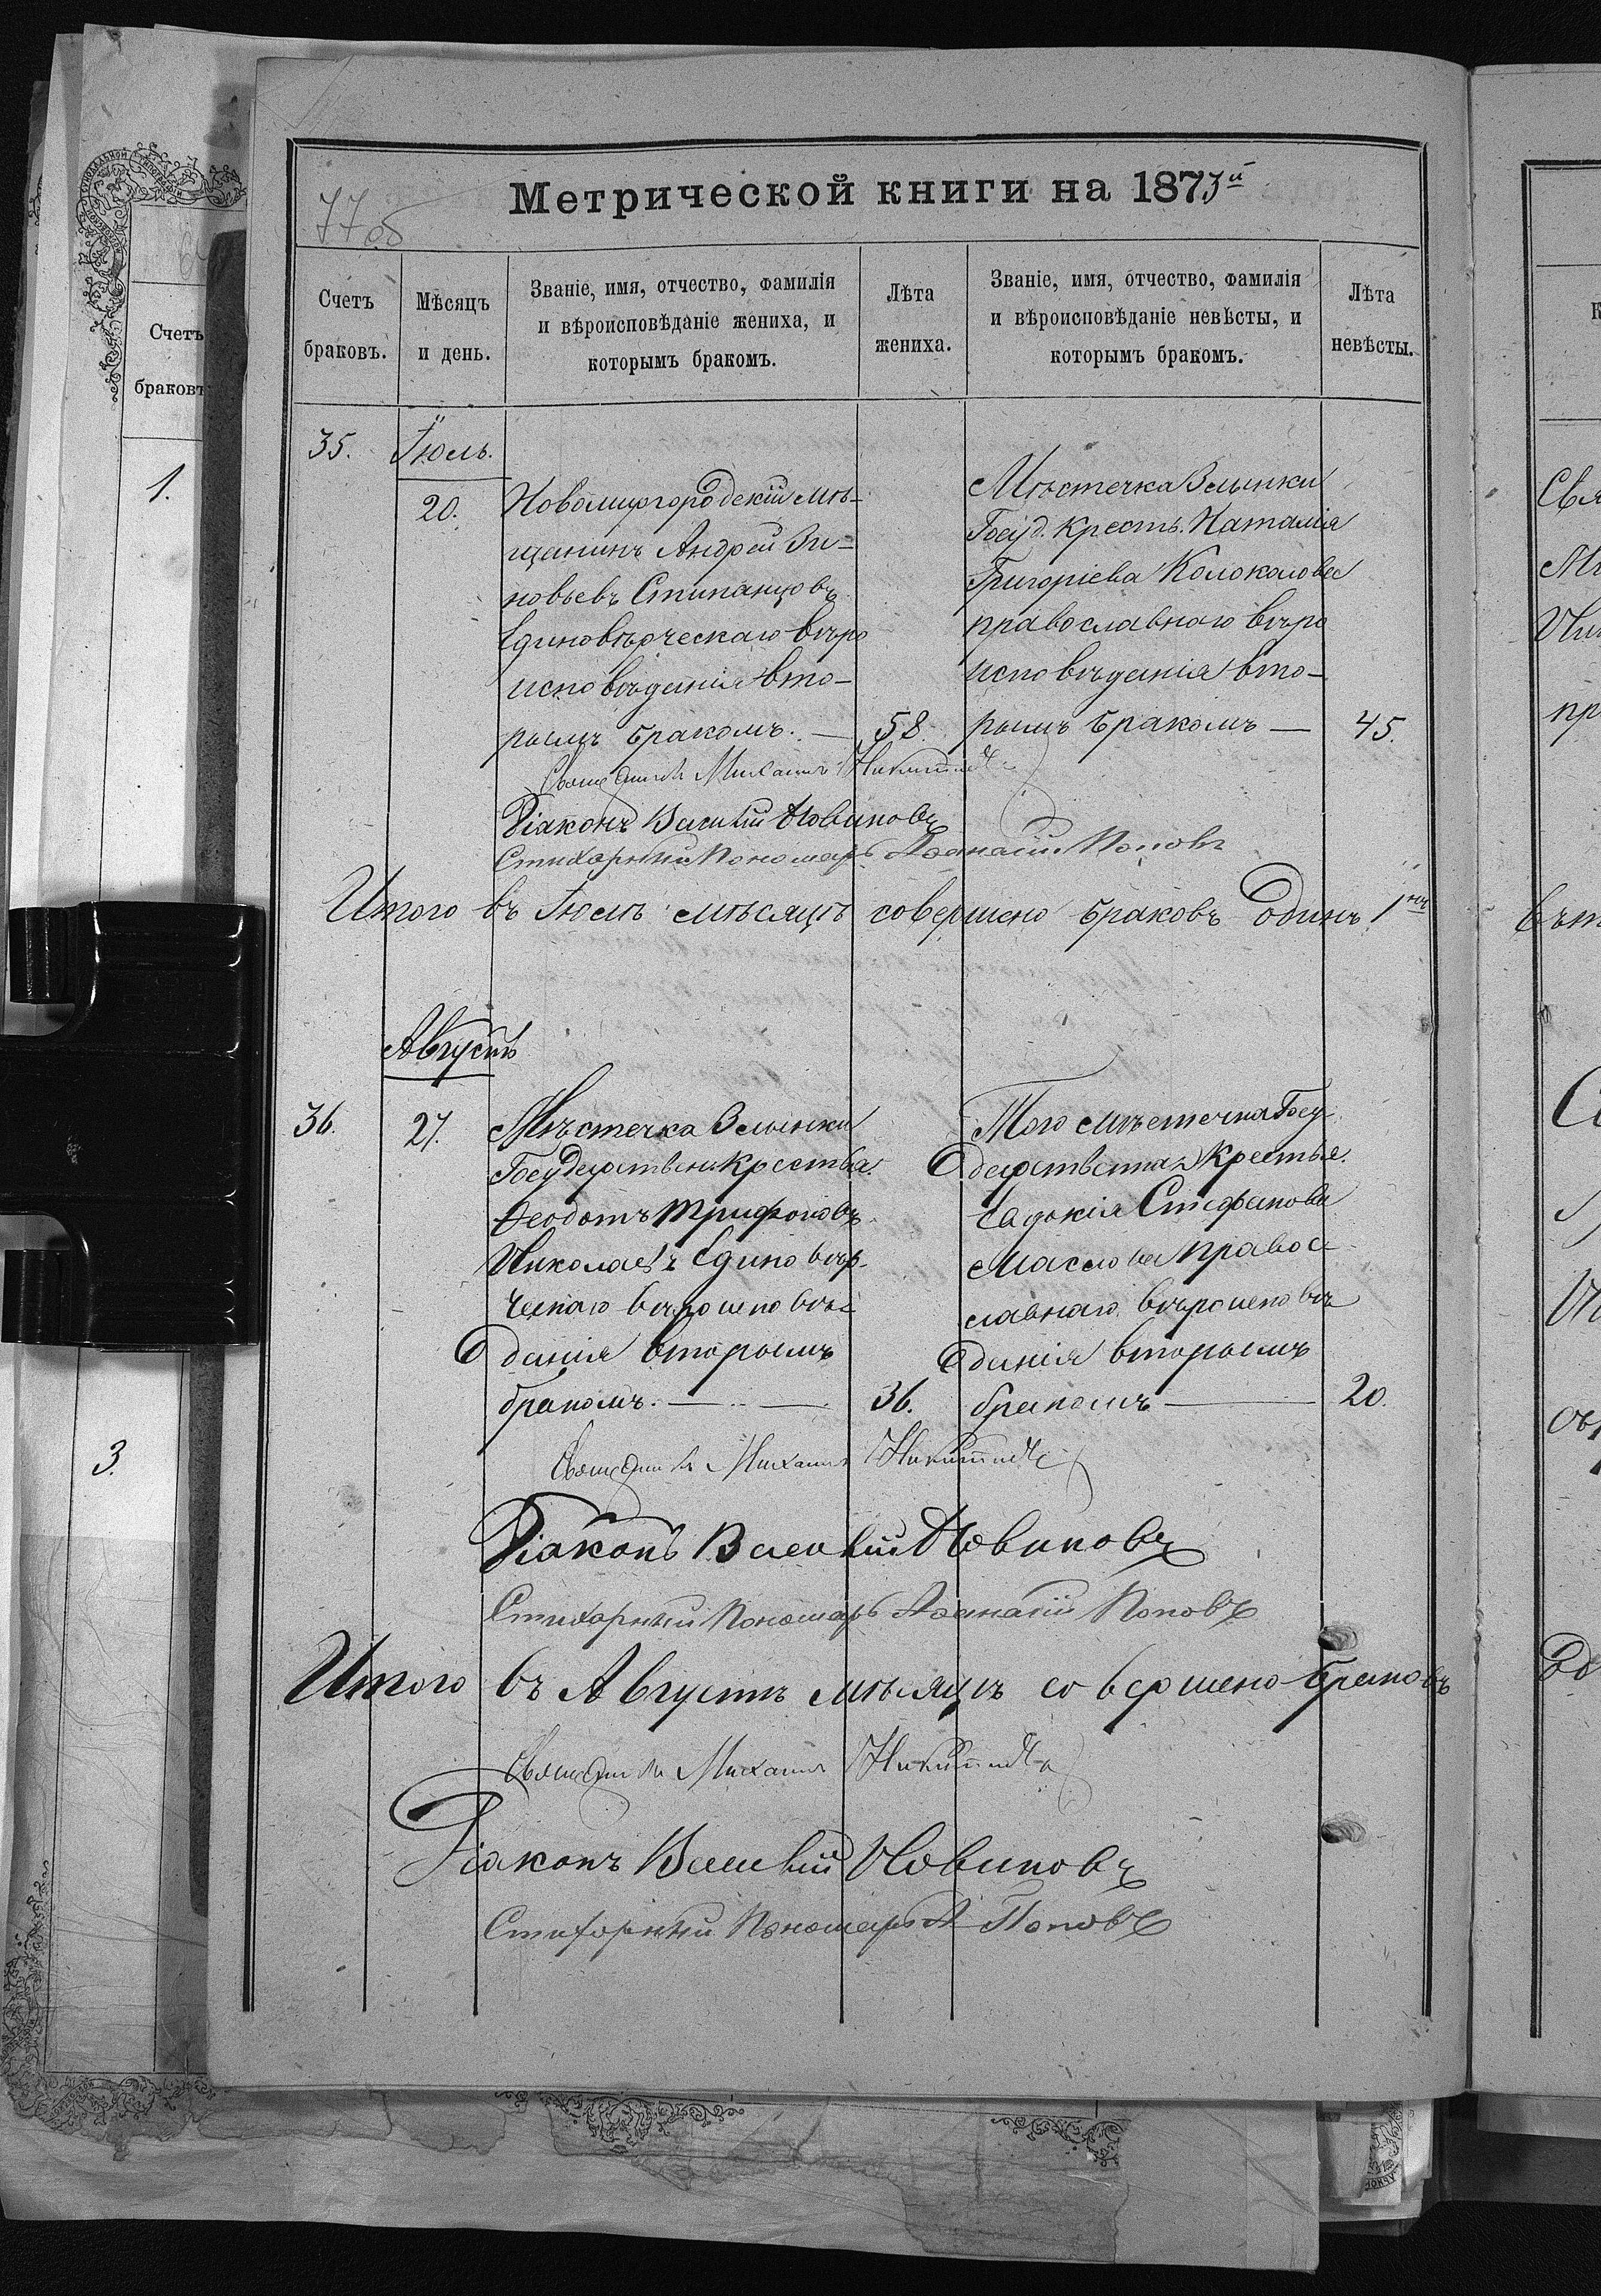 77 об
Метрической книги на 1873й
Счетъ браковъ.
Мѣсяцъ и день.
Званіе, имя, отчество, фамилія
и вѣроисповѣданіе жениха, и
которымъ бракомъ.
Лѣта жениха.
Званіе, имя, отчество, фамилія
и вѣроисповѣданіе невѣсты, и
которымъ бракомъ.
Лѣта невѣсты.
35.
Іюль.
20.
Новомиргородскій мѣ-
щанинъ Андрей Зи-
новьевъ Степанцовъ
Единовѣрческаго вѣро
исповѣданія вто-
рымъ бракомъ. —
58.
Мѣстечка Злынки
Госуд. Крест. Наталія
Григоріева Колоколова
православного вѣро
исповѣданія вто-
рымъ бракомъ —
45.
Священникъ Михаилъ
Діаконъ Василій Новиковъ
Стихарный Пономарь Аѳанасій Поповъ
Итого въ Іюлѣ мѣсяцѣ совершено браковъ Одинъ 1
Августъ
36.
27.
Мѣстечка Злынки
Государственъ Крестья.
Ѳеодотъ Трифоновъ
Николаевъ Единовѣр-
ческаго вѣроисповѣ-
данія вторымъ
бракомъ. — —
36.
Того мѣстечка Госу-
дарственная Крестья.
Евдокія Стефанова
Маслова Правос-
славнаго вѣроисповѣ
данія вторымъ
бракомъ —
20.
Священникъ Михаилъ
Діаконъ Василій Новиковъ
Стихарный Пономарь Аѳанасій Поповъ
Итого въ Августѣ мѣсяцѣ совершено браковъ
Священникъ Михаилъ
Діаконъ Василій Новиковъ
Стихарный Пономарь А Поповъ
Счетъ
браковъ
1.
3.